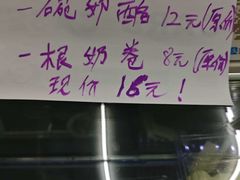 一碗奶酪 12元(原价
一根奶卷 8元(原价)
现价 18元!